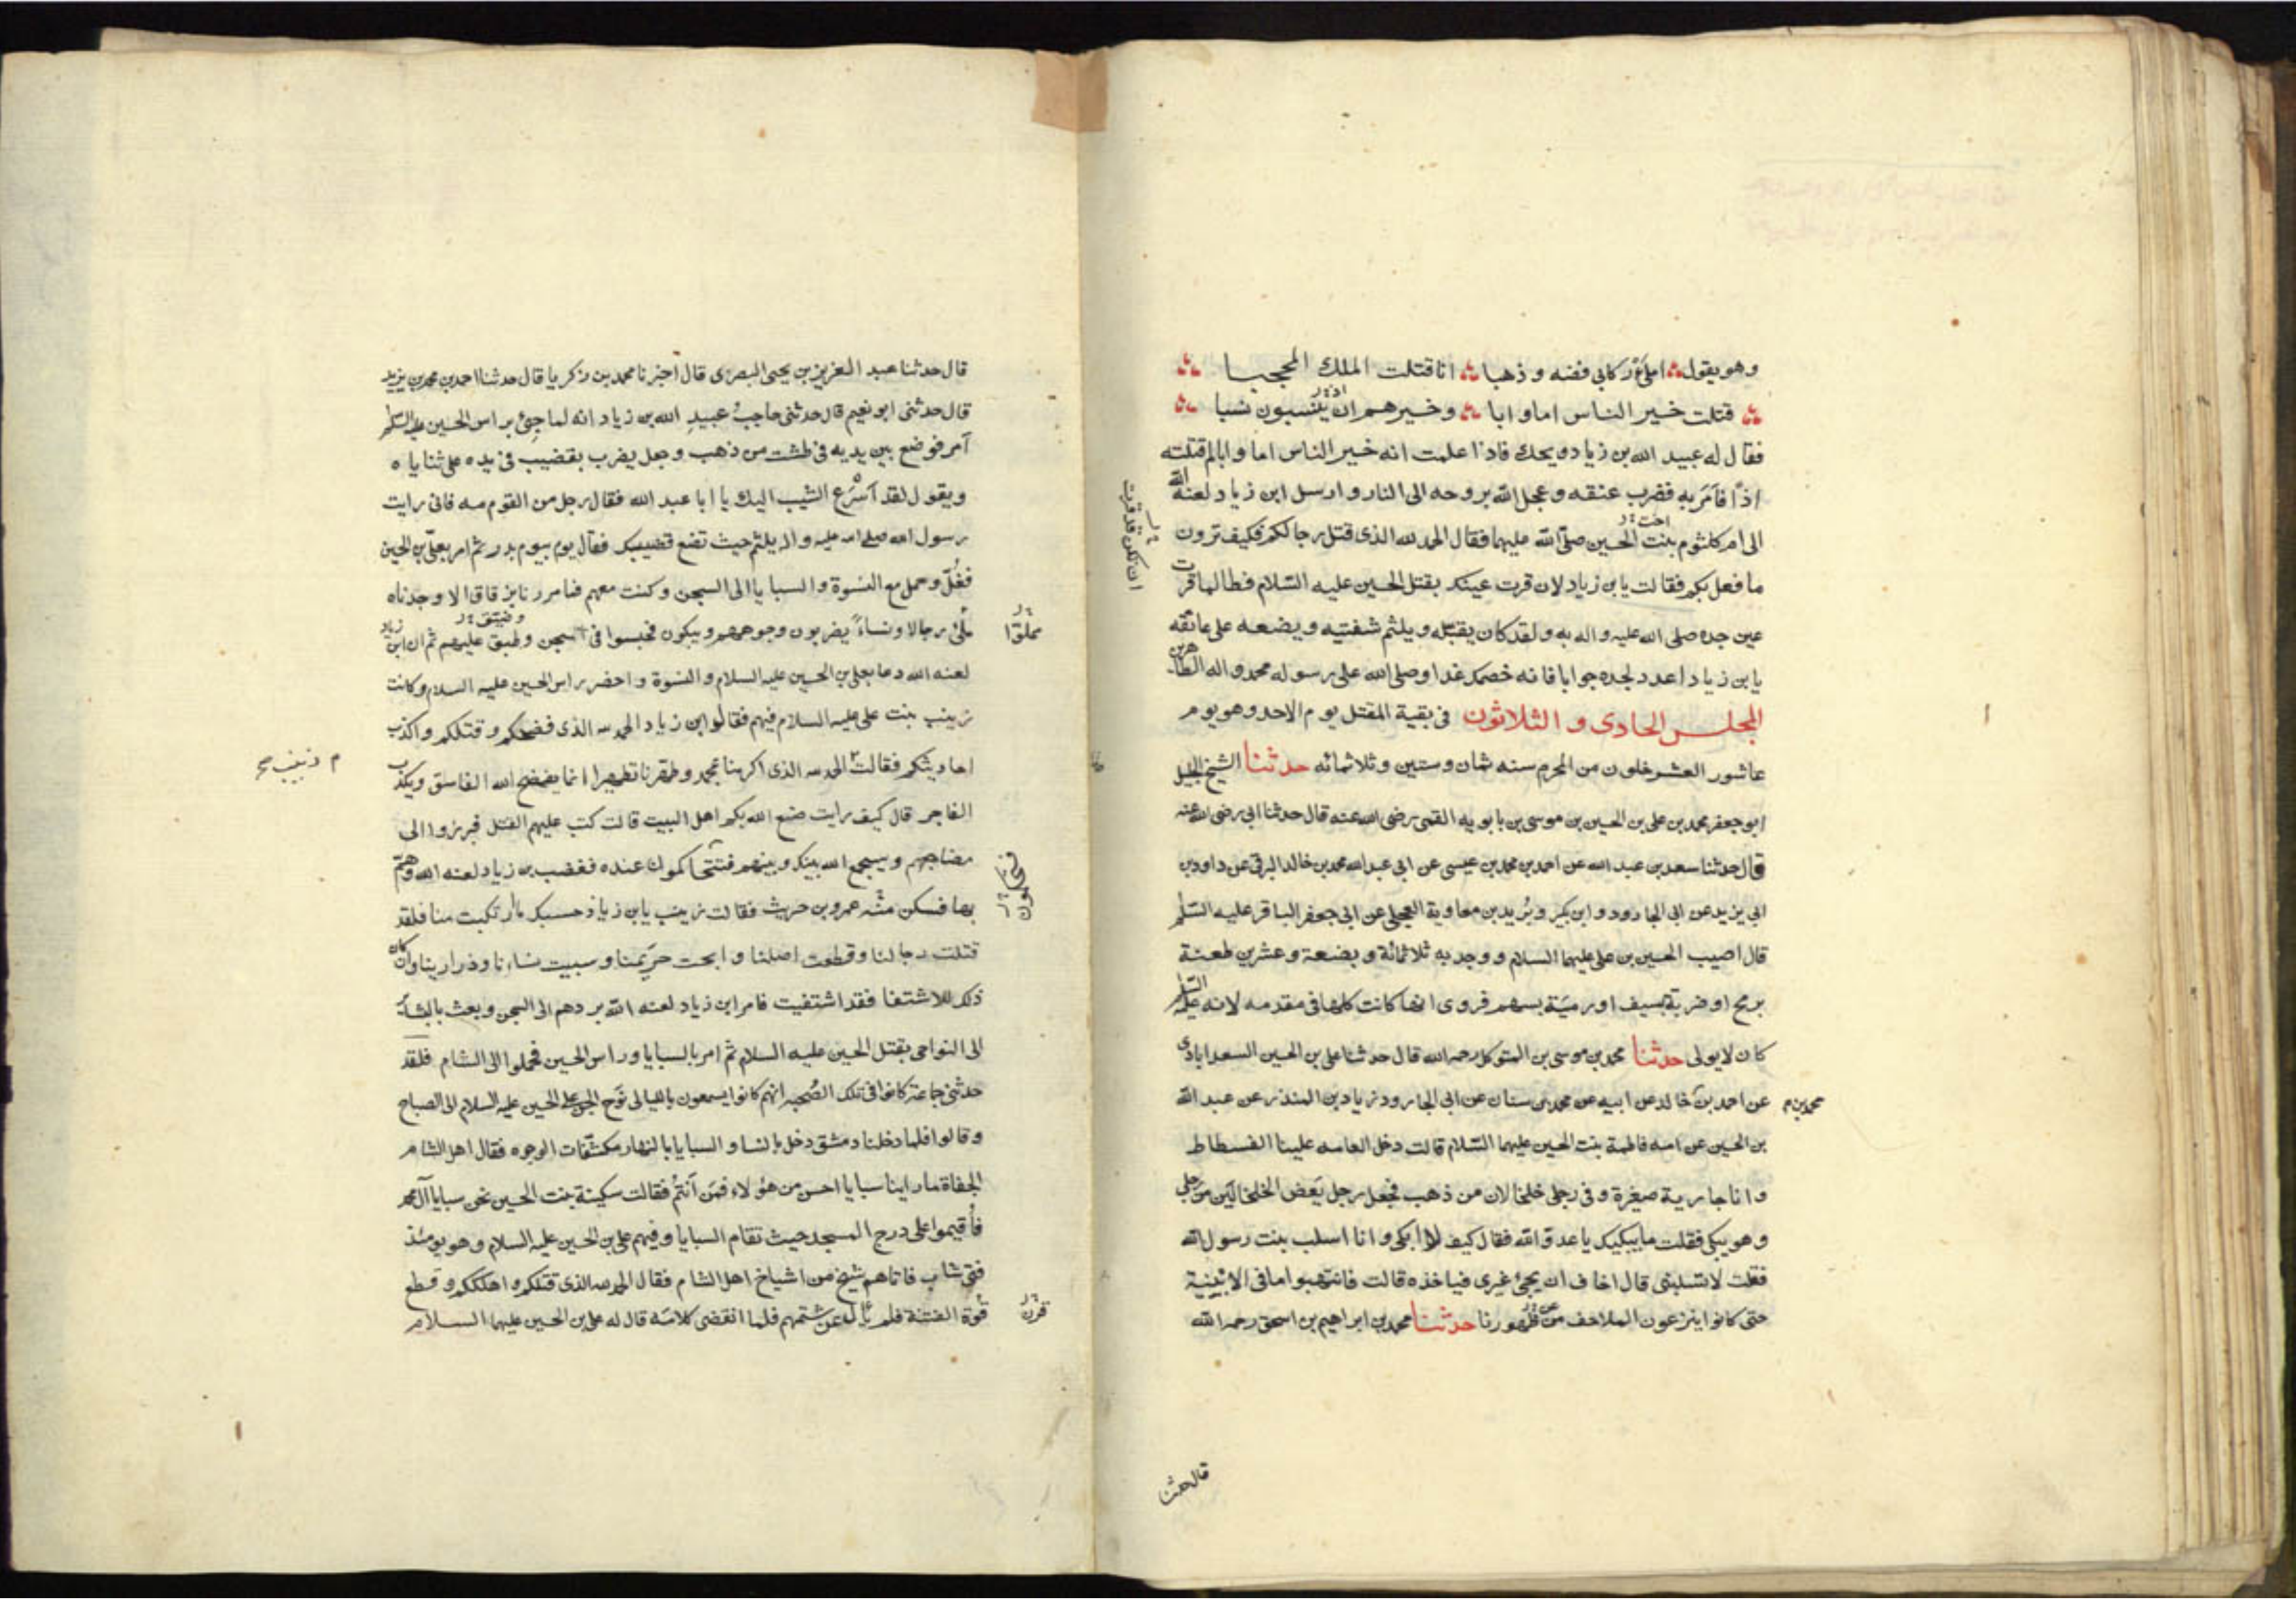 وهو يقول املأ ركابي فضه و ذهبا انا قتلت الملك المحجبا
قتلت خير الناس اما و ابا وخيرهم ان ينسبون نسبا
اذ
فقال له عبيد الله بن زياد ويحك فاذا علمت انه خير الناس اما وابا لم قتلته
اذًا فأمَرَ به فضرب عنقه وعجل الله بروحه الى النار وارسل ابن زياد لعنه الله
الى ام كلثوم بنت الحسين صلى الله عليهما فقال الحمد لله الذى قتل رجالكم فكيف ترون
اخت
ما فعل بكم فقالت يا بن زياد لان قرت عينك بقتل الحسين عليه السّلام فطالما قرت
ان تكن قد قرت
عين جده صلى الله عليه و اله به ولقد كان يقبّله ويلثم شفتيه ويضعه على عاتقه
يا بن زياد اعدد لجده جوابا فانه خصمك غدا وصلى الله على رسوله محمد واله الطاهرين
المجلس الحادى و الثلاثون فى بقية المقتل يوم الاحد وهو يوم
عاشور العشر خلون من المحرم سنه ثمان وستين وثلاثمائه حدثنا الشيخ الجليل
ابو جعفر محمد بن على بن الحسين بن موسى بن بابويه القمى رضى الله عنه قال حدثنا ابى رضى الله عنه
قال حدثنا سعد بن عبد الله عن احمد بن محمد بن عيسى عن ابى عبد الله محمد بن خالد البرقى عن داود بن
ابى يزيد عن ابى الجارود و ابن بكير وبُريد بن معاوية العجلى عن ابى جعفر الباقر عليه السّلم
قال اصيب الحسين بن على عليهما السلام ووجد به ثلاثمائة و بضعة وعشرين طعنة
برمح او ضربة بسيف او رميَة بسهم فروى انها كانت كلها فى مقدمه لانه عليه السّلم
كان لا يولى حدثنا محمد بن موسى بن المتوكل رحمه الله قال حدثنا على بن الحسين السعدابادى
عن احمد بن خالد عن ابيه عن محمد بن سنان عن ابى الجارود زياد بن المنذر عن عبد الله
محمد بن م
بن الحسين عن امه فاطمة بنت الحسين عليهما السّلام قالت دخل العامه علينا الفسطاط
وانا جارية صغيرة وفى رجلى خلخالان من ذهب فجعل رجل يَفضّ الخلخالَين من رجلى
وهو يبكى فقلت ما يبكيك يا عدوّ الله فقال كيف لا ابكى و انا اسلب بنت رسول الله
فقلت لا تسلبنى قال اخاف ان يجئ غيرى فياخذه قالت فانتهبوا ما فى الابنية
حتى كانوا ينزعون الملاحف عن ظهورنا حدثنا محمد بن ابراهيم بن اسحق رحمه الله
قال حدثنا
قال حدثنا عبد العزيز بن يحيى البصرى قال اخبرنا محمد بن زكريا قال حدثنا احمد بن محمد بن يزيد
قال حدثنى ابو نعيم قال حدثنى حاجبُ عبيدِ الله بن زياد انه لما جئ براس الحسين عليه السّلم
أمر فوضع بين يديه فى طشت من ذهب وجعل يضرب بقضيب فى يده على ثناياه
ويقول لقد أسْرَعَ الشيب اليك يا ابا عبد الله فقال رجل من القوم مه فانى رايت
رسول الله صلى الله عليه واله يلثم حيث تضع قضيبك فقال يوم بيوم بدر ثم امر بعلىّ بن الحسين
فغُلّ وحمل مع النسوة والسبايا الى السجن وكنت معهم فما مررنا بزقاق الا وجدناه
مُلئ رجالا ونساءً يضربون وجوههم ويبكون فحبسوا فى سجن وطبق عليهم ثم ان ابن زياد
وضيّق
مملوّا
لعنه الله دعا بعلى بن الحسين عليه السلام والنسوة واحضر راس الحسين عليه السلام وكانت
زينب بنت على عليه السلام فيهم فقال ابن زياد الحمد لله الذى فضحكم وقتلكم واكذب
احاديثكم فقالت الحمد لله الذى اكرمنا بمحمد وطهّرنا تطهيرا انما يفضح الله الفاسق ويكذب
زينب صح
الفاجر قال كيف رايت صنع الله بكم اهل البيت قالت كتب عليهم القتل فبرزوا الى
مضاجعهم وسيجمع الله بينك وبينهم فتتحاكمون عنده فغضب بن زياد لعنه الله وهَمّ
بها فسكن منه عمرو بن حريث فقالت زينب يا بن زياد حسبك ما ارتكبت منا فلقد
قتلت رجالنا وقطعت اصلنا و ابحت حريمنا وسبيت نساءنا وذرارينا وان كان
ذلك للاشتفا فقد اشتفيت فامر ابن زياد لعنه الله بردهم الى السجن وبعث بالبشائر
الى النواحى بقتل الحسين عليه السلام ثم امر بالسبايا وراس الحسين فحملوا الى الشام فلقد
حدثنى جماعة كانوا فى تلك الصُحبه انهم كانوا يسمعون بالليالى نَوح الجن على الحسين عليه السلام الى الصباح
وقالوا فلما دخلنا دمشق دخل بالنسا و السبايا بالنهار مكشّفات الوجوه فقال اهل الشام
الجفاة ما راينا سبايا احسن من هؤلاء فمَن أنتمُ فقالت سكينة بنت الحسين نحن سبايا آل محمد
فأُقيموا على درج المسجد حيث تقام السبايا وفيهم على بن الحسين عليه السلام وهو يومئذ
فتى شاب فاتاهم شيخ من اشياخ اهل الشام فقال الحمد لله الذى قتلكم واهلككم وقطع
قُوة الفتنة فلم يأل عن شتمهم فلما انقضى كلامه قال له على بن الحسين عليهما السلام
قرن